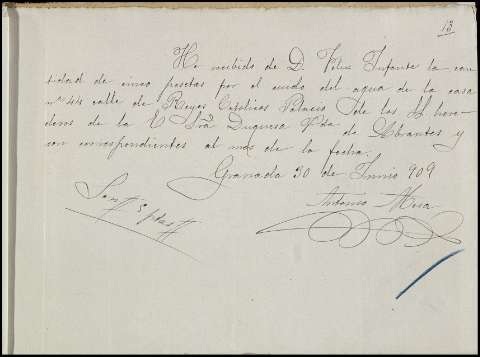 13
He recibido de D. Felix Infante la can-
tidad de cinco pesetas por el cuido del agua de la casa
nº 44 calle de Reyes Católicos Palacio de los H here-
deros de la E Sra Duquesa Vda de Abrantes y
son correspondientes al mes de la fecha.
Granada 30 de Junio 909
Son # 5 ptas #
Antonio Mesa